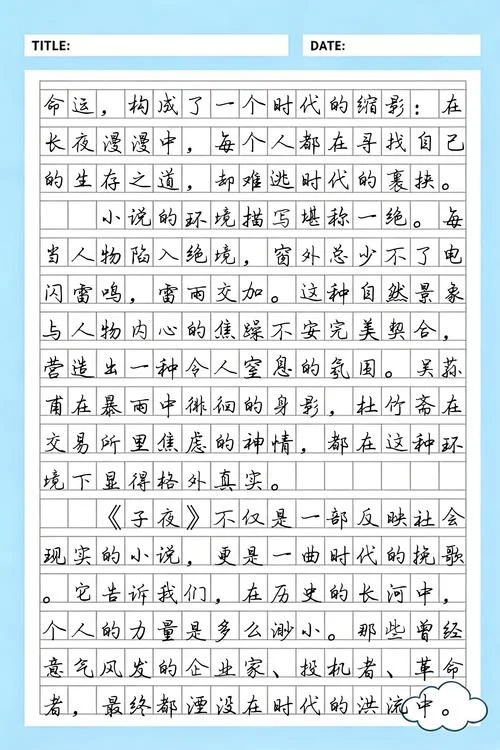 TITLE:
DATE:
命运，构成了一个时代的缩影：在
长夜漫漫中，每个人都在寻找自己
的生存之道，却难逃时代的裹挟。
小说的环境描写堪称一绝。每
当人物陷入绝境，窗外总少不了电
闪雷鸣，雷雨交加。这种自然景象
与人物内心的焦躁不安完美契合，
营造出一种令人窒息的氛围。吴荪
甫在暴雨中徘徊的身影，杜竹斋在
交易所里焦虑的神情，都在这种环
境下显得格外真实。
《子夜》不仅是一部反映社会
现实的小说，更是一曲时代的挽歌
。它告诉我们，在历史的长河中，
个人的力量是多么渺小。那些曾经
意气风发的企业家、投机者、革命
者，最终都湮没在时代的洪流中。